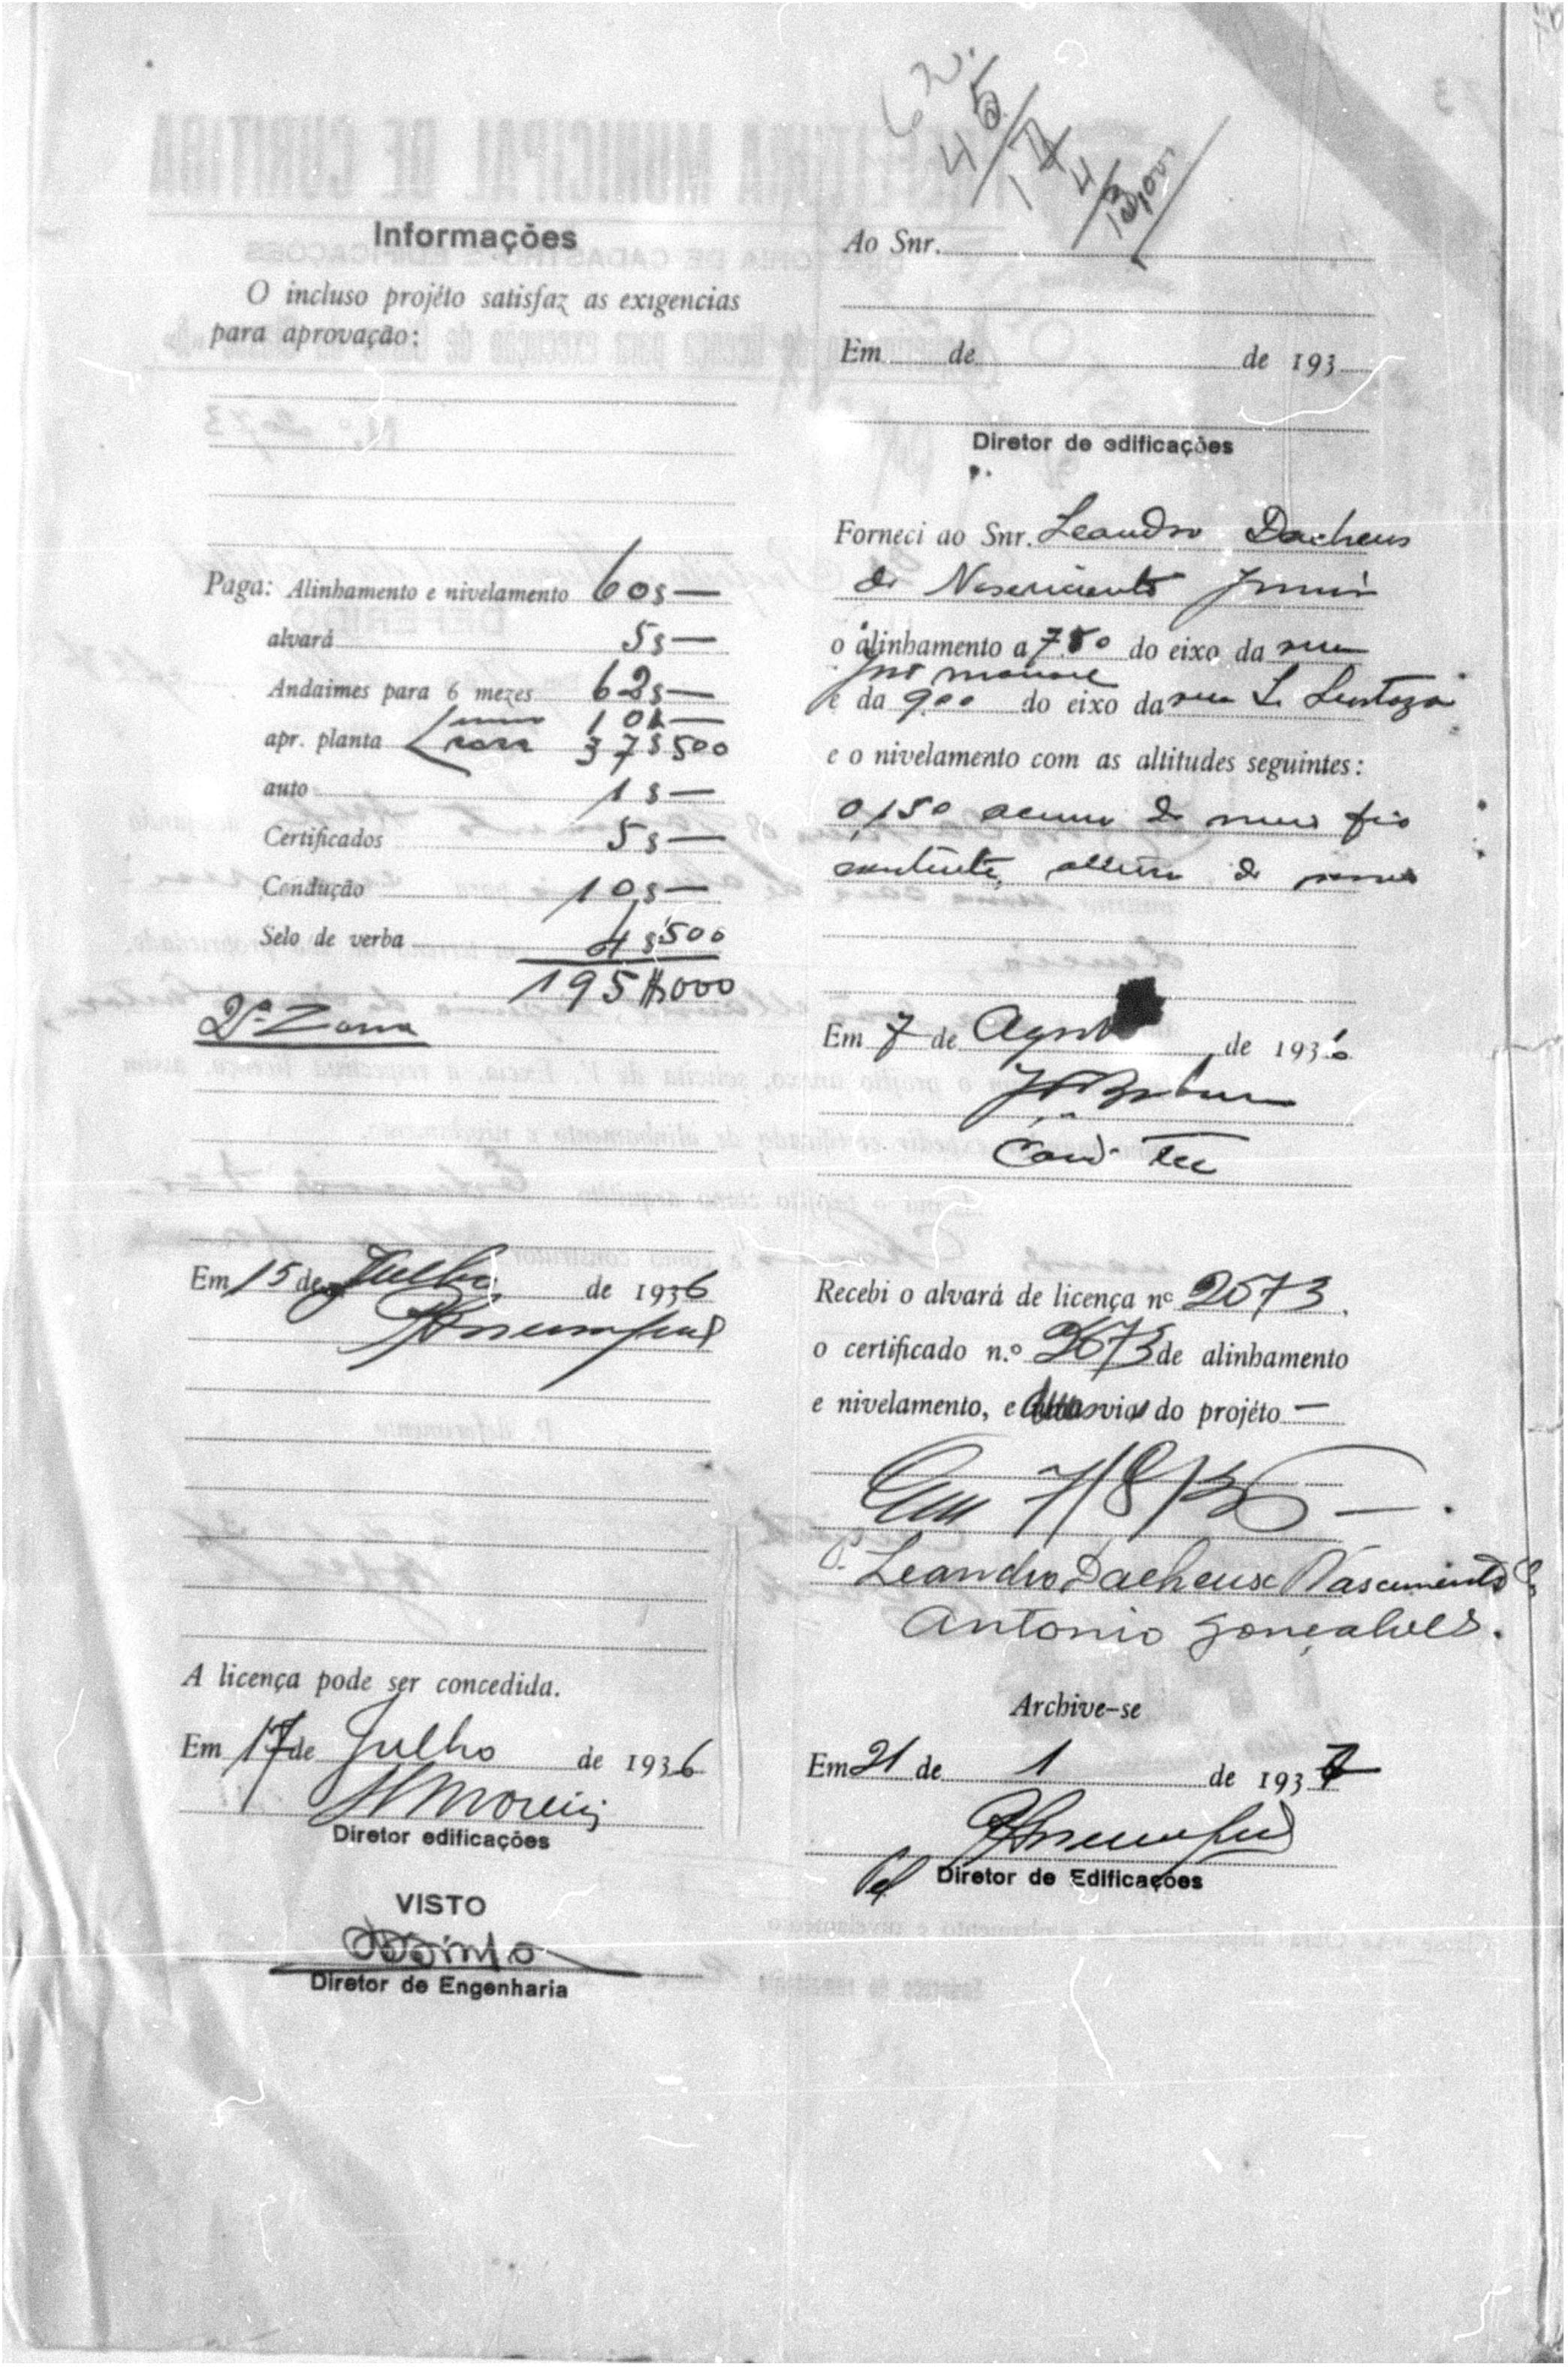 Informações
O incluso projéto satisfaz as exigencias
para aprovação:
Paga: Alinhamento e nivelamento 60$—
alvará 5$—
Andaimes para 6 mezes 62$—
muro 10$—
apr. planta casa 37$500
auto 1$—
Certificados 5$—
Condução 10$—
Selo de verba 4$500
195$000
2ª Zona
Em 15 de Julho de 1936
A licença pode ser concedida.
Em 17 de Julho de 1936
Diretor edificações
VISTO
Diretor de Engenharia
Ao Snr.
Em de de 193
Diretor de edificações
Forneci ao Snr. Leandro Dacheux
do Nascimento Junior
o alinhamento a 7.50 do eixo da rua
e da 9.00 do eixo da rua
e o nivelamento com as altitudes seguintes:
0,150 acima do meio fio
Em 7 de Agosto de 1936
Cond. Tec
Recebi o alvará de licença nº 2673.
o certificado n.º 2673 de alinhamento
e nivelamento, e uma via do projéto —
Em 7/8/36 —.
P. Leandro Dacheux Nascimento
Antonio Gonçalves.
Archive-se
Em 21 de 1 de 1937
Diretor de Edificações